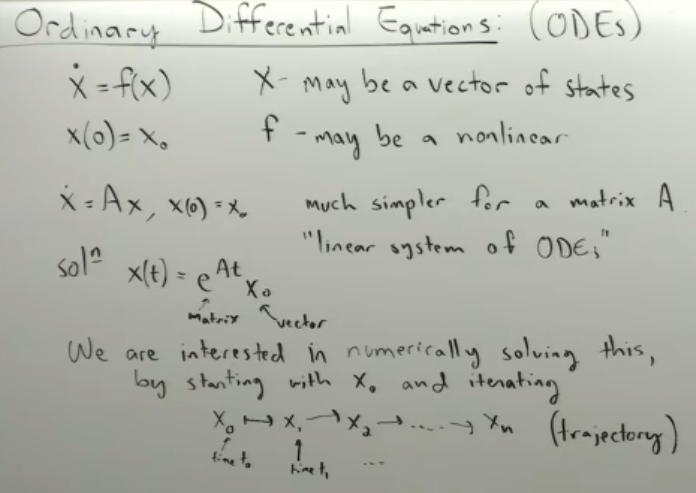 Ordinary Differential Equations: (ODEs)
ẋ = f(x) x - may be a vector of states
x(0) = x₀ f - may be a nonlinear
ẋ = Ax, x(0) = x₀ much simpler for a matrix A
"linear system of ODEs"
solⁿ x(t) = e^{At} x₀
matrix vector
We are interested in numerically solving this,
by starting with x₀ and iterating
x₀ ↦ x₁ → x₂ → ..... → xₙ (trajectory)
time t₀ time t₁ ...